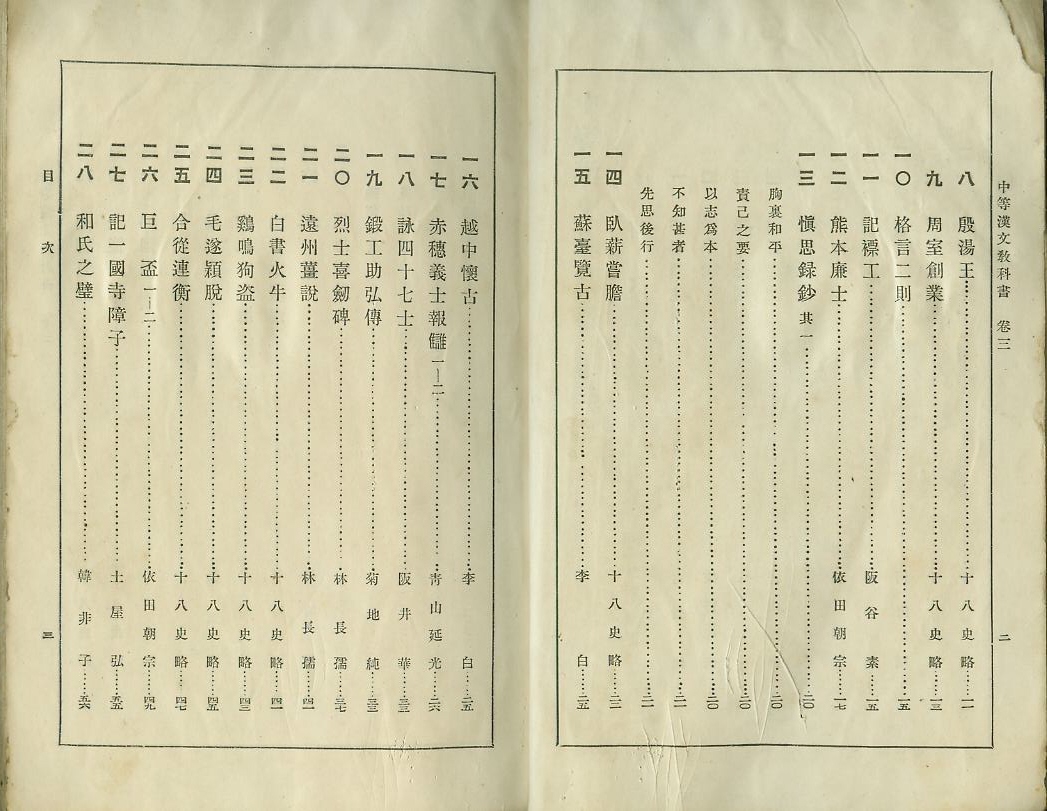 中等漢文敎科書 卷三
二
八 殷湯王……十八史略……一一
九 周室創業……十八史略……一三
一〇 格言二則……一五
一一 記褾工……阪谷素……一五
一二 熊本廉士……依田朝宗……一七
一三 愼思録鈔 其一……二〇
胸裏和平……二〇
責己之要……二〇
以志爲本……二〇
不知甚者……二一
先思後行……二一
一四 臥薪嘗膽……十八史略……二二
一五 蘇臺覽古……李白……二五
一六 越中懷古……李白……二五
一七 赤穗義士報讎 一—二……靑山延光……二六
一八 詠四十七士……阪井華……三三
一九 鍛工助弘傳……菊地純……三三
二〇 烈士喜劒碑……林長孺……三七
二一 遠州薑說……林長孺……四一
二二 白書火牛……十八史略……四二
二三 鷄鳴狗盜……十八史略……四三
二四 毛遂穎脫……十八史略……四五
二五 合從連衡……十八史略……四七
二六 巨盃 一—二……依田朝宗……四九
二七 記一國寺障子……土屋弘……五五
二八 和氏之璧……韓非子……五六
目次
三